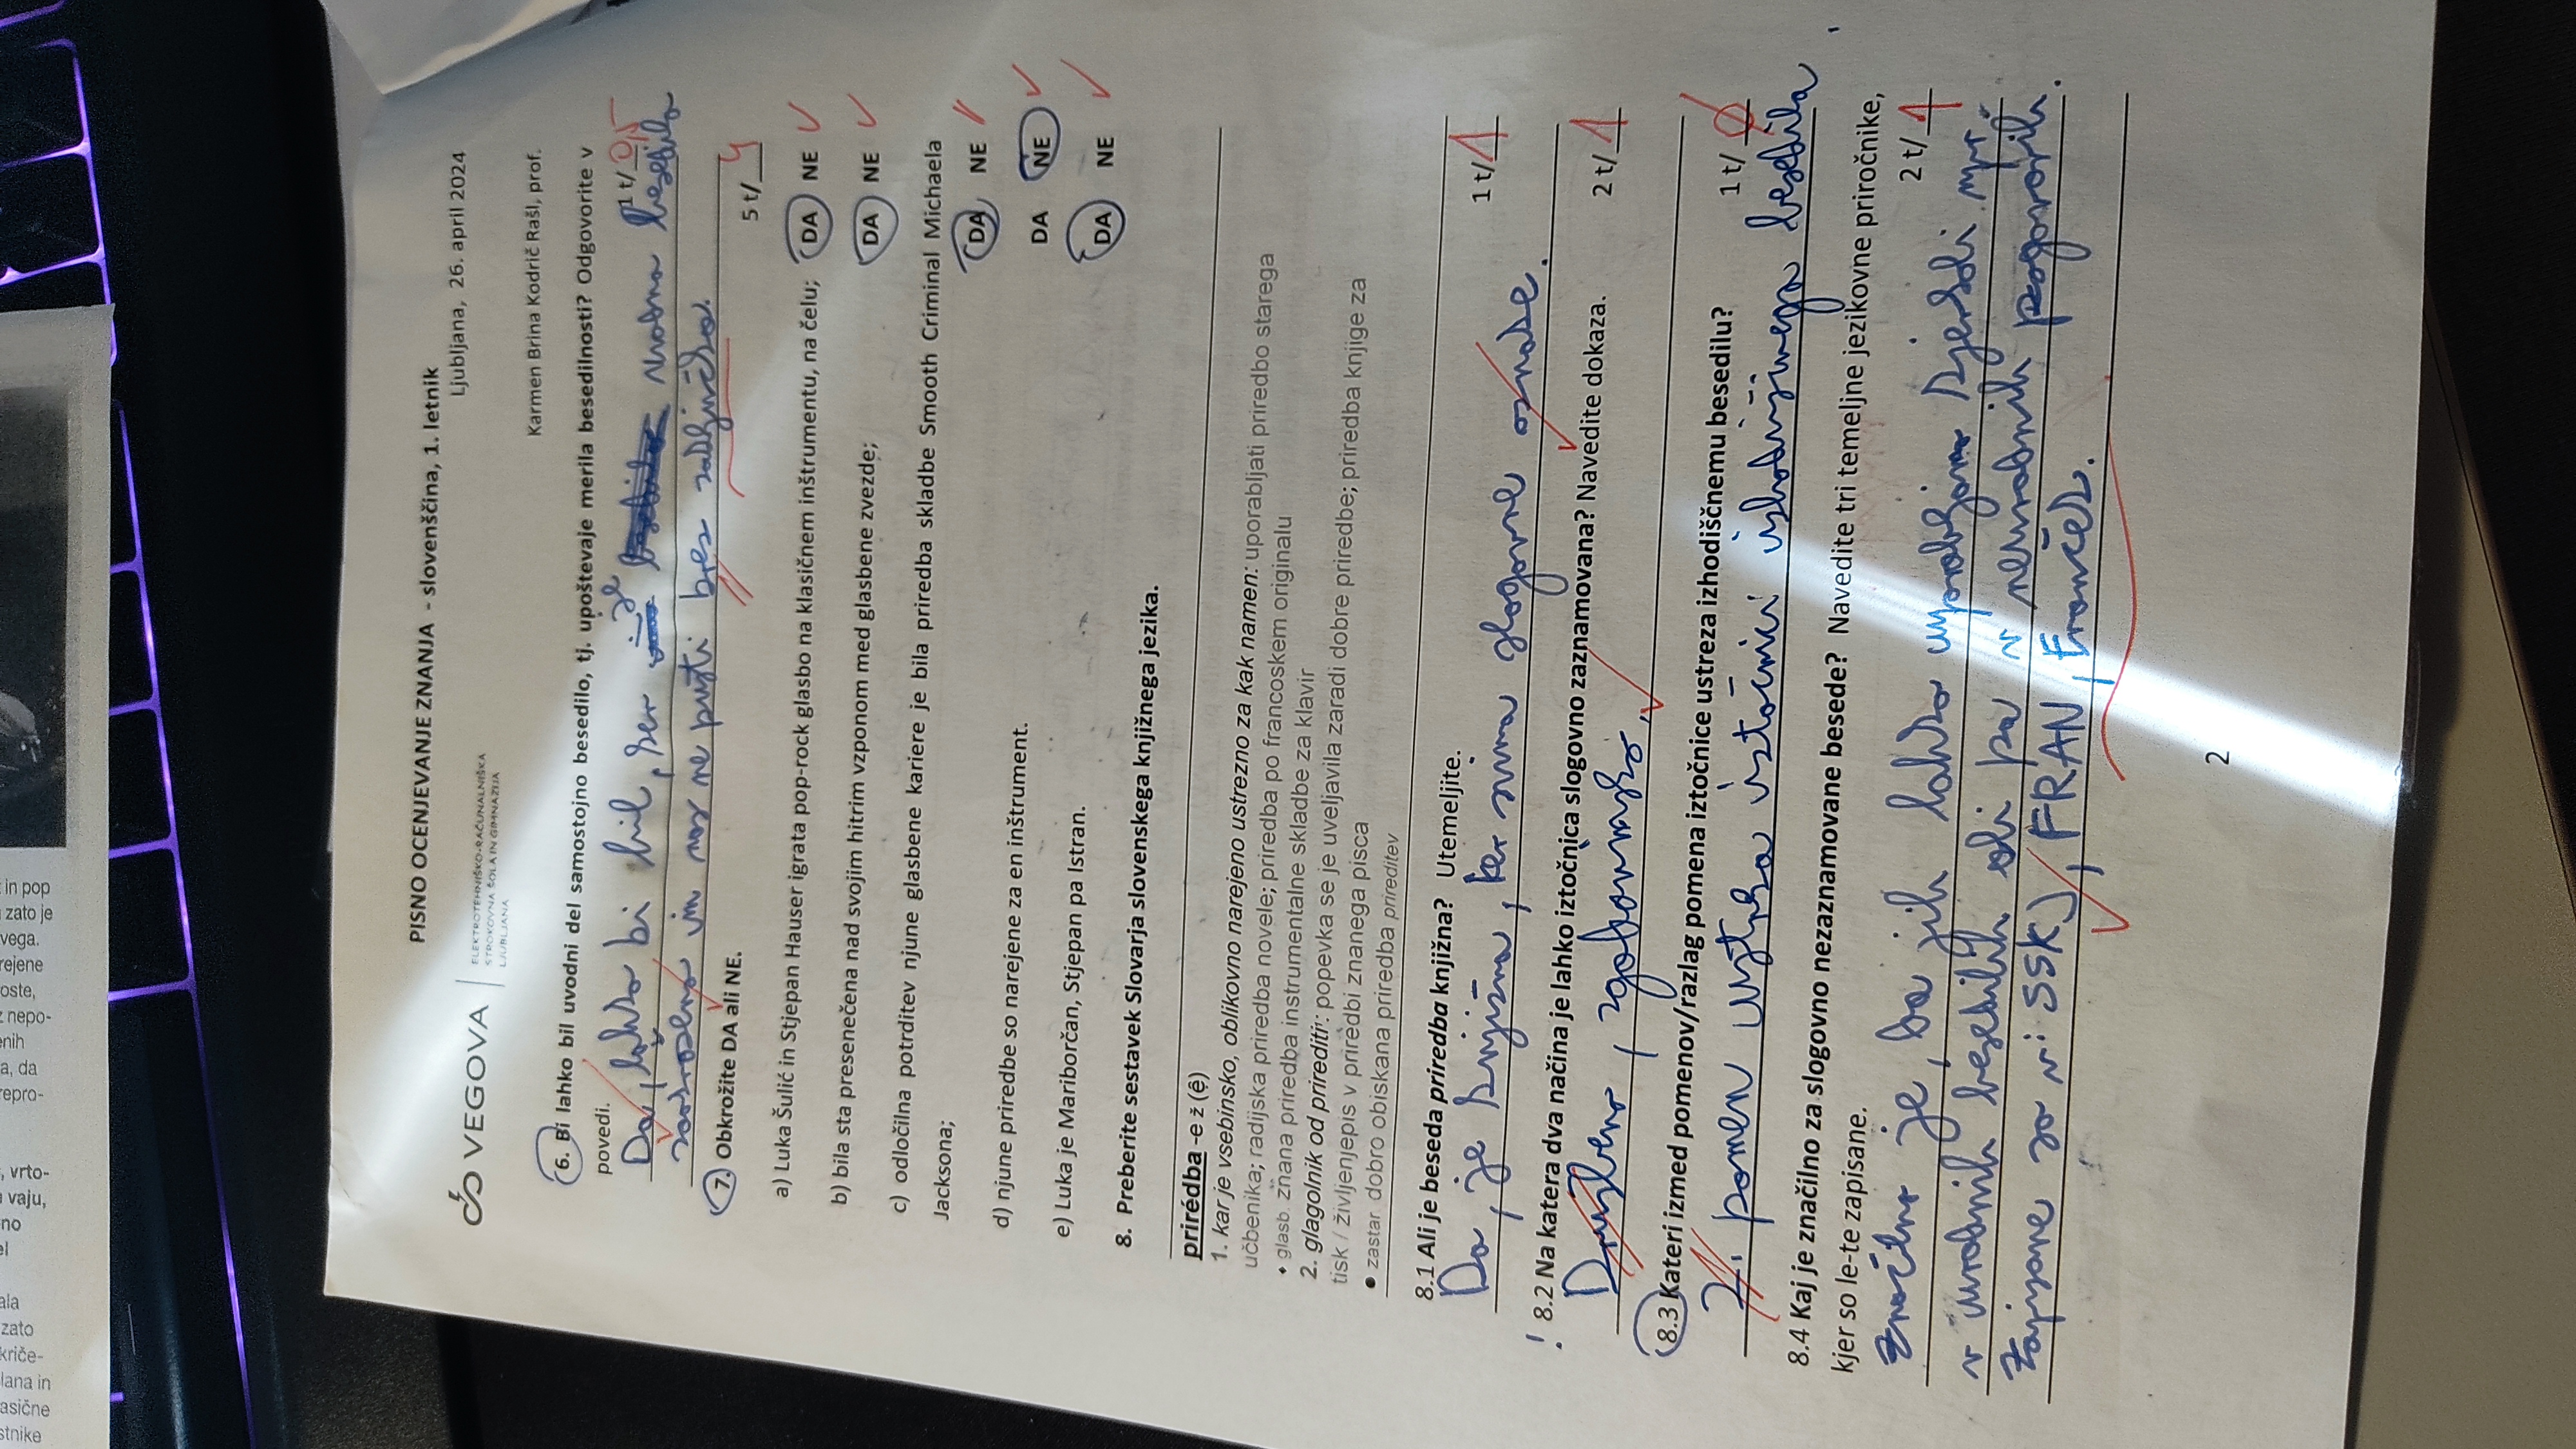 in pop
zato je
vega.
rejene
oste,
nepo-
enih
a, da
repro-
vrto-
vaju,
no
el
ala
zato
kriče-
lana in
asične
stnike
PISNO OCENJEVANJE ZNANJA - slovenščina, 1. letnik
Ljubljana, 26. april 2024
VEGOVA
ELEKTROTEHNIŠKO-RAČUNALNIŠKA
STROKOVNA ŠOLA IN GIMNAZIJA
LJUBLJANA
Karmen Brina Kodrič Rašl, prof.
6. Bi lahko bil uvodni del samostojno besedilo, tj. upoštevaje merila besedilnosti? Odgovorite v
povedi.
1 t/ 0,5
Da, lahko bi bil, ker je uradno besedilo
zaokroženo in nas ne pusti brez zaključka.
7. Obkrožite DA ali NE.
5 t/ 4
a) Luka Šulić in Stjepan Hauser igrata pop-rock glasbo na klasičnem inštrumentu, na čelu; DA NE
b) bila sta presenečena nad svojim hitrim vzponom med glasbene zvezde; DA NE
c) odločilna potrditev njune glasbene kariere je bila priredba skladbe Smooth Criminal Michaela
Jacksona; DA NE
d) njune priredbe so narejene za en inštrument. DA NE
e) Luka je Mariborčan, Stjepan pa Istran. DA NE
8. Preberite sestavek Slovarja slovenskega knjižnega jezika.
prirédba -e ž (ẹ̑)
1. kar je vsebinsko, oblikovno narejeno ustrezno za kak namen: uporabljati priredbo starega
učbenika; radijska priredba novele; priredba po francoskem originalu
♦ glasb. znana priredba instrumentalne skladbe za klavir
2. glagolnik od prirediti¹: popevka se je uveljavila zaradi dobre priredbe; priredba knjige za
tisk / življenjepis v priredbi znanega pisca
● zastar. dobro obiskana priredba prireditev
8.1 Ali je beseda priredba knjižna? Utemeljite.
1 t/ 1
Da, je knjižna, ker nima slogovne oznake.
! 8.2 Na katera dva načina je lahko iztočnica slogovno zaznamovana? Navedite dokaza.
2 t/ 1
Družbeno, zgodovinsko.
8.3 Kateri izmed pomenov/razlag pomena iztočnice ustreza izhodiščnemu besedilu?
1 t/ 0
2. pomen ustreza iztočnici izhodiščnega besedila.
8.4 Kaj je značilno za slogovno nezaznamovane besede? Navedite tri temeljne jezikovne priročnike,
kjer so le-te zapisane.
2 t/ 1
Značilno je, da jih lahko uporabljamo kjerkoli npr.
v uradnih besedilih ali pa v neuradnih pogovorih.
Zapisane so v: SSKJ, FRAN, Franček.
2